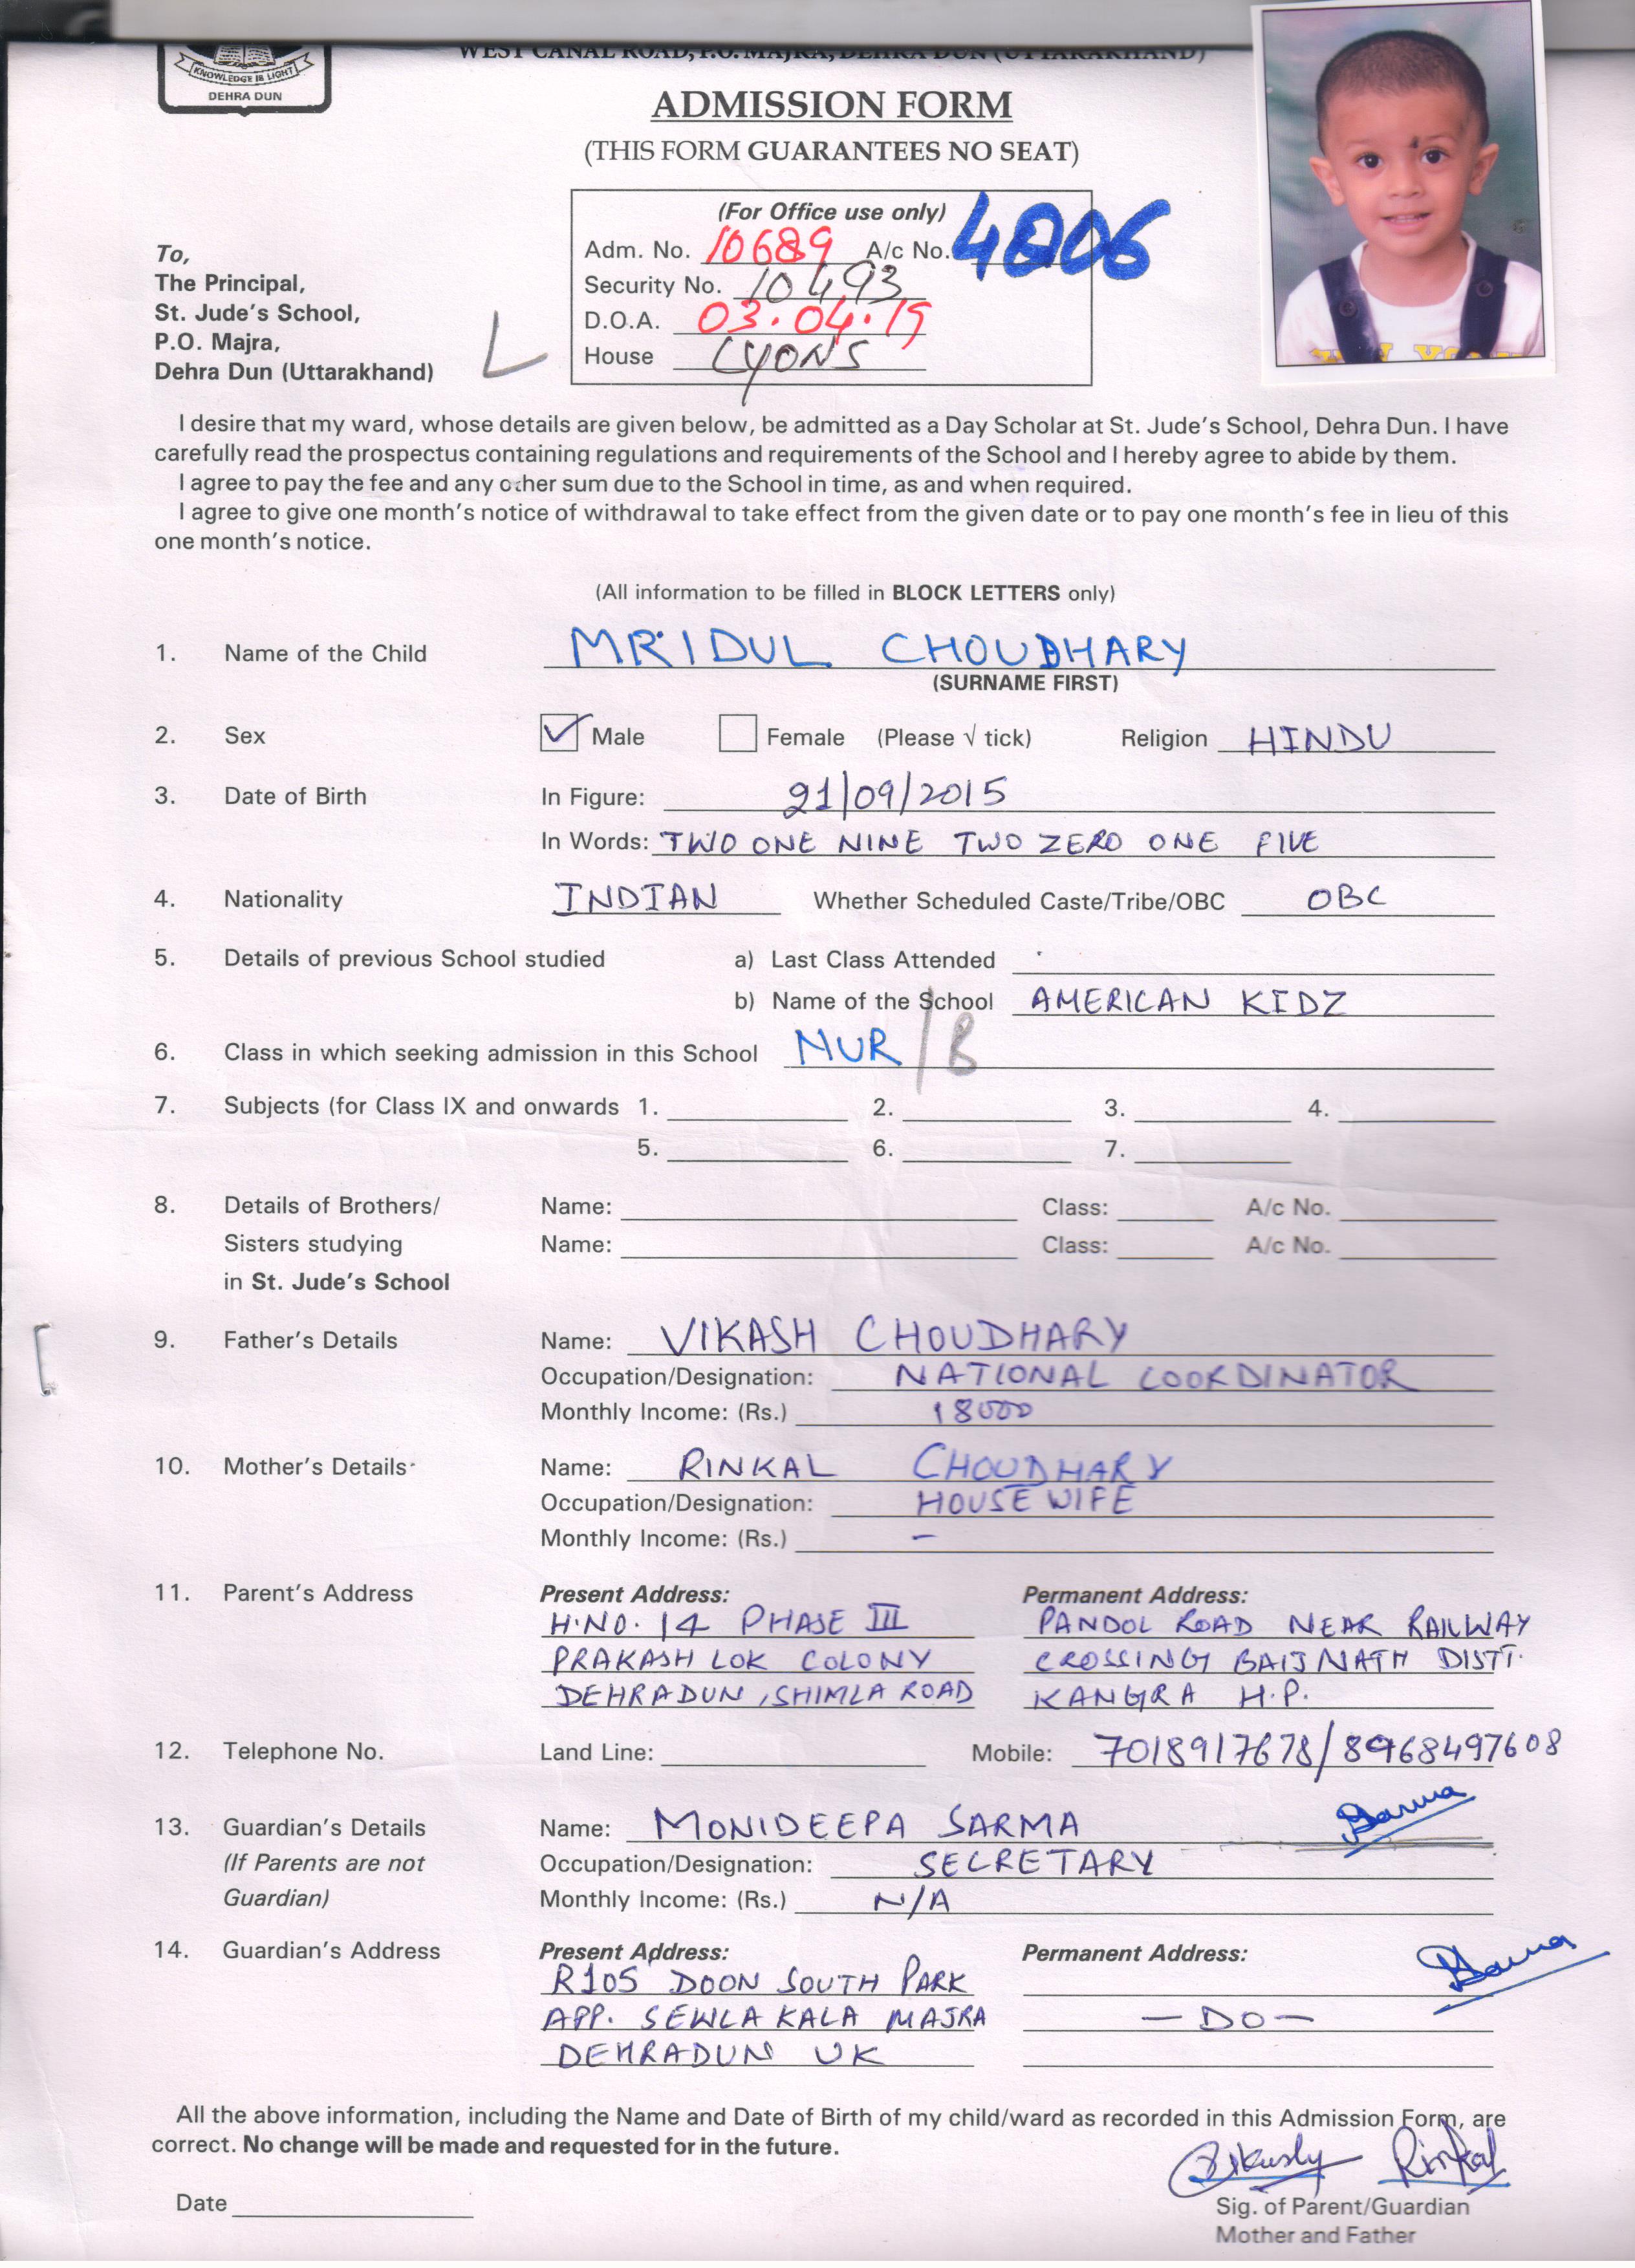 KNOWLEDGE IS LIGHT
DEHRA DUN
WEST CANAL ROAD, P.O. MAJRA, DEHRA DUN (UTTARAKHAND)
ADMISSION FORM
(THIS FORM GUARANTEES NO SEAT)
(For Office use only)
Adm. No. 10689 A/c No. 4806
Security No. 10493
D.O.A. 03.04.19
House LYONS
To,
The Principal,
St. Jude's School,
P.O. Majra,
Dehra Dun (Uttarakhand)
L
I desire that my ward, whose details are given below, be admitted as a Day Scholar at St. Jude's School, Dehra Dun. I have
carefully read the prospectus containing regulations and requirements of the School and I hereby agree to abide by them.
I agree to pay the fee and any other sum due to the School in time, as and when required.
I agree to give one month's notice of withdrawal to take effect from the given date or to pay one month's fee in lieu of this
one month's notice.
(All information to be filled in BLOCK LETTERS only)
1. Name of the Child MRIDUL CHOUDHARY
(SURNAME FIRST)
2. Sex Male Female (Please √ tick) Religion HINDU
3. Date of Birth In Figure: 21/09/2015
In Words: TWO ONE NINE TWO ZERO ONE FIVE
4. Nationality INDIAN Whether Scheduled Caste/Tribe/OBC OBC
5. Details of previous School studied a) Last Class Attended
b) Name of the School AMERICAN KIDZ
6. Class in which seeking admission in this School NUR/B
7. Subjects (for Class IX and onwards 1. 2. 3. 4.
5. 6. 7.
8. Details of Brothers/ Name: Class: A/c No.
Sisters studying Name: Class: A/c No.
in St. Jude's School
9. Father's Details Name: VIKASH CHOUDHARY
Occupation/Designation: NATIONAL COORDINATOR
Monthly Income: (Rs.) 18000
10. Mother's Details Name: RINKAL CHOUDHARY
Occupation/Designation: HOUSE WIFE
Monthly Income: (Rs.) –
11. Parent's Address Present Address: Permanent Address:
H.NO. 14 PHASE III PANDOL ROAD NEAR RAILWAY
PRAKASH LOK COLONY CROSSING BAIJNATH DISTT.
DEHRADUN, SHIMLA ROAD KANGRA H.P.
12. Telephone No. Land Line: Mobile: 7018917678/8968497608
13. Guardian's Details Name: MONIDEEPA SARMA Sarma
(If Parents are not Occupation/Designation: SECRETARY
Guardian) Monthly Income: (Rs.) N/A
14. Guardian's Address Present Address: Permanent Address: Sarma
R105 DOON SOUTH PARK
APP. SEWLA KALA MAJRA – DO –
DEHRADUN UK
All the above information, including the Name and Date of Birth of my child/ward as recorded in this Admission Form, are
correct. No change will be made and requested for in the future.
Rinkal
Date
Sig. of Parent/Guardian
Mother and Father